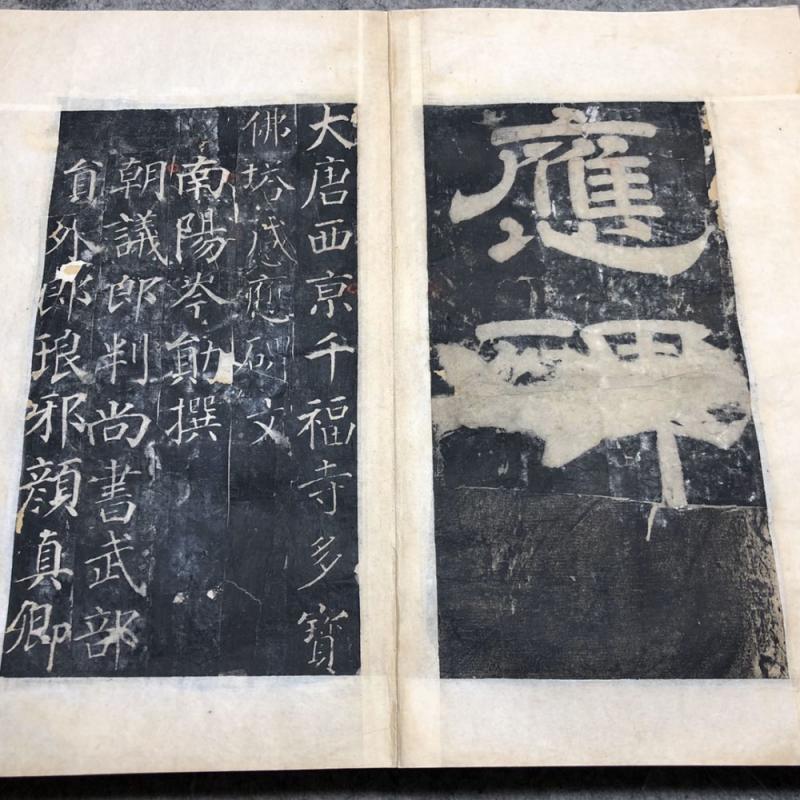 應
碑
大唐西京千福寺多寶
佛塔感應碑文
南陽岑勛撰
朝議郎判尚書武部
員外郎琅邪顏真卿